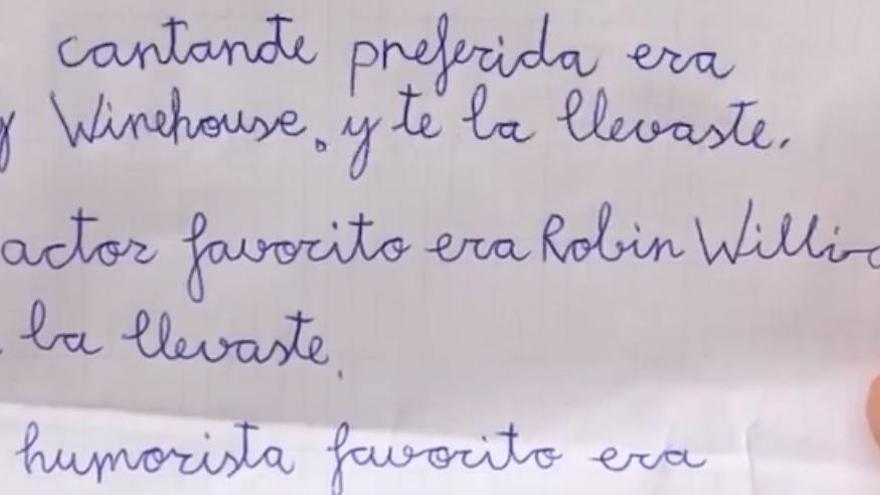 cantante preferida era
y Winehouse. y te la llevaste.
actor favorito era Robin Willia
la llevaste.
humorista favorito era